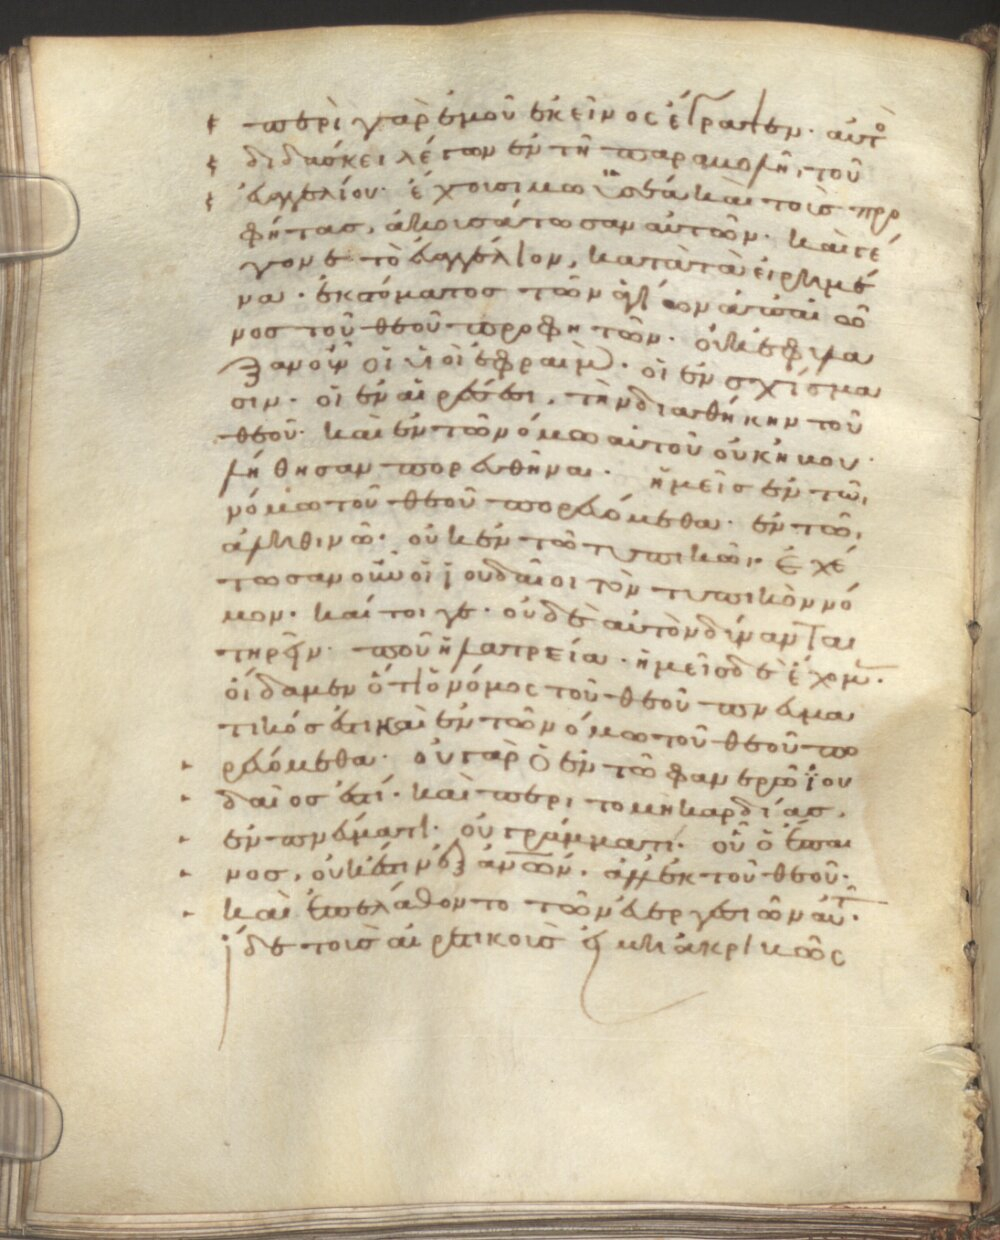 περὶ γὰρ ἐμοῦ ἐκεῖνος ἔγραψεν· αὐτὸ
διδάσκει λέγων ἐν τῆ παραβολῆ, τοῦ
ἐυαγγελίου· ἔχουσι μωϋσέα καὶ τοὺς προ
φήτας, ἀκουσάτωσαν αὐτῶν· καὶ γέ
γονε τὸ ἐυαγγέλιον, κατὰ τὰ εἰρημέ
να· ἐκ στόματος τῶν ἁγίων ἀπ' αἰῶ
νος τοῦ θεοῦ προφητῶν· οὐκ ἐφύλα
ξαν οὖν οἱ υἱοὶ ἐφραὶμ· οἱ ἐν σχίσμα
σιν· οἱ ἐν αἱρέσεσι, τὴν διαθήκην τοῦ
θεοῦ· καὶ ἐν τῶ νόμω αὐτοῦ οὐκ ἠβου
λήθησαν πορευθῆναι· ἡμεῖς ἐν τῶ,
νόμω τοῦ θεοῦ πορευόμεθα· ἐν τῶ,
ἀληθινῶ· οὐκ ἐν τῶ τυπικῶ· ἐχέ
τωσαν οὖν οἱ ϊουδαῖοι τὸν τυπικὸν νό
μον· καί τοι γε· οὐδὲ αὐτὸν δύνανται
τηρεῖν· ποῦ ἡ λατρεία· ἡμεῖς δὲ ἔχομεν·
οἴδαμεν ὅτι ὁ νόμος τοῦ θεοῦ πνευμα
τικός ἐστι καὶ ἐν τῶ νόμω τοῦ θεοῦ πο
ρευόμεθα· οὐ γὰρ ὁ ἐν τῶ φανερῶ ϊου
δαῖος ἐστί· καὶ περιτομὴ καρδίας,
ἐν πνεύματι· οὐ γράμματι· οὗ ὁ ἔπαι
νος, οὐκ ἔστιν ἐξ ἀνων, ἀλλ' ἐκ τοῦ θεοῦ·
καὶ ἐπελάθοντο τῶν ἐυεργεσιῶν αὐτοῦ·
ϊδε τοῖς αἱρετικοῖς